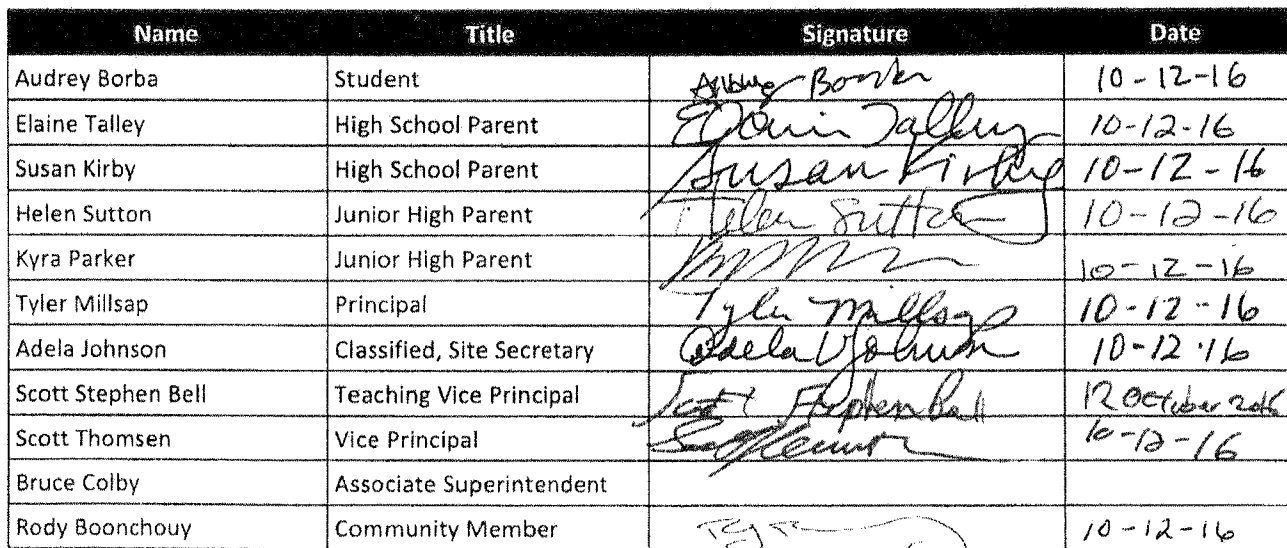 Name Title Signature Date
Audrey Borba Student Audrey Borba 10-12-16
Elaine Talley High School Parent Elaine Talley 10-12-16
Susan Kirby High School Parent Susan Kirby 10-12-16
Helen Sutton Junior High Parent Helen Sutton 10-12-16
Kyra Parker Junior High Parent 10-12-16
Tyler Millsap Principal Tyler Millsap 10-12-16
Adela Johnson Classified, Site Secretary Adela Johnson 10-12-16
Scott Stephen Bell Teaching Vice Principal Scott Stephen Bell 12 October 2016
Scott Thomsen Vice Principal 10-12-16
Bruce Colby Associate Superintendent
Rody Boonchouy Community Member 10-12-16